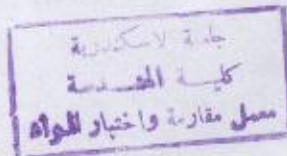 جامعة الاسكندرية
كلية الهندسة
معمل مقاومة واختبار المواد